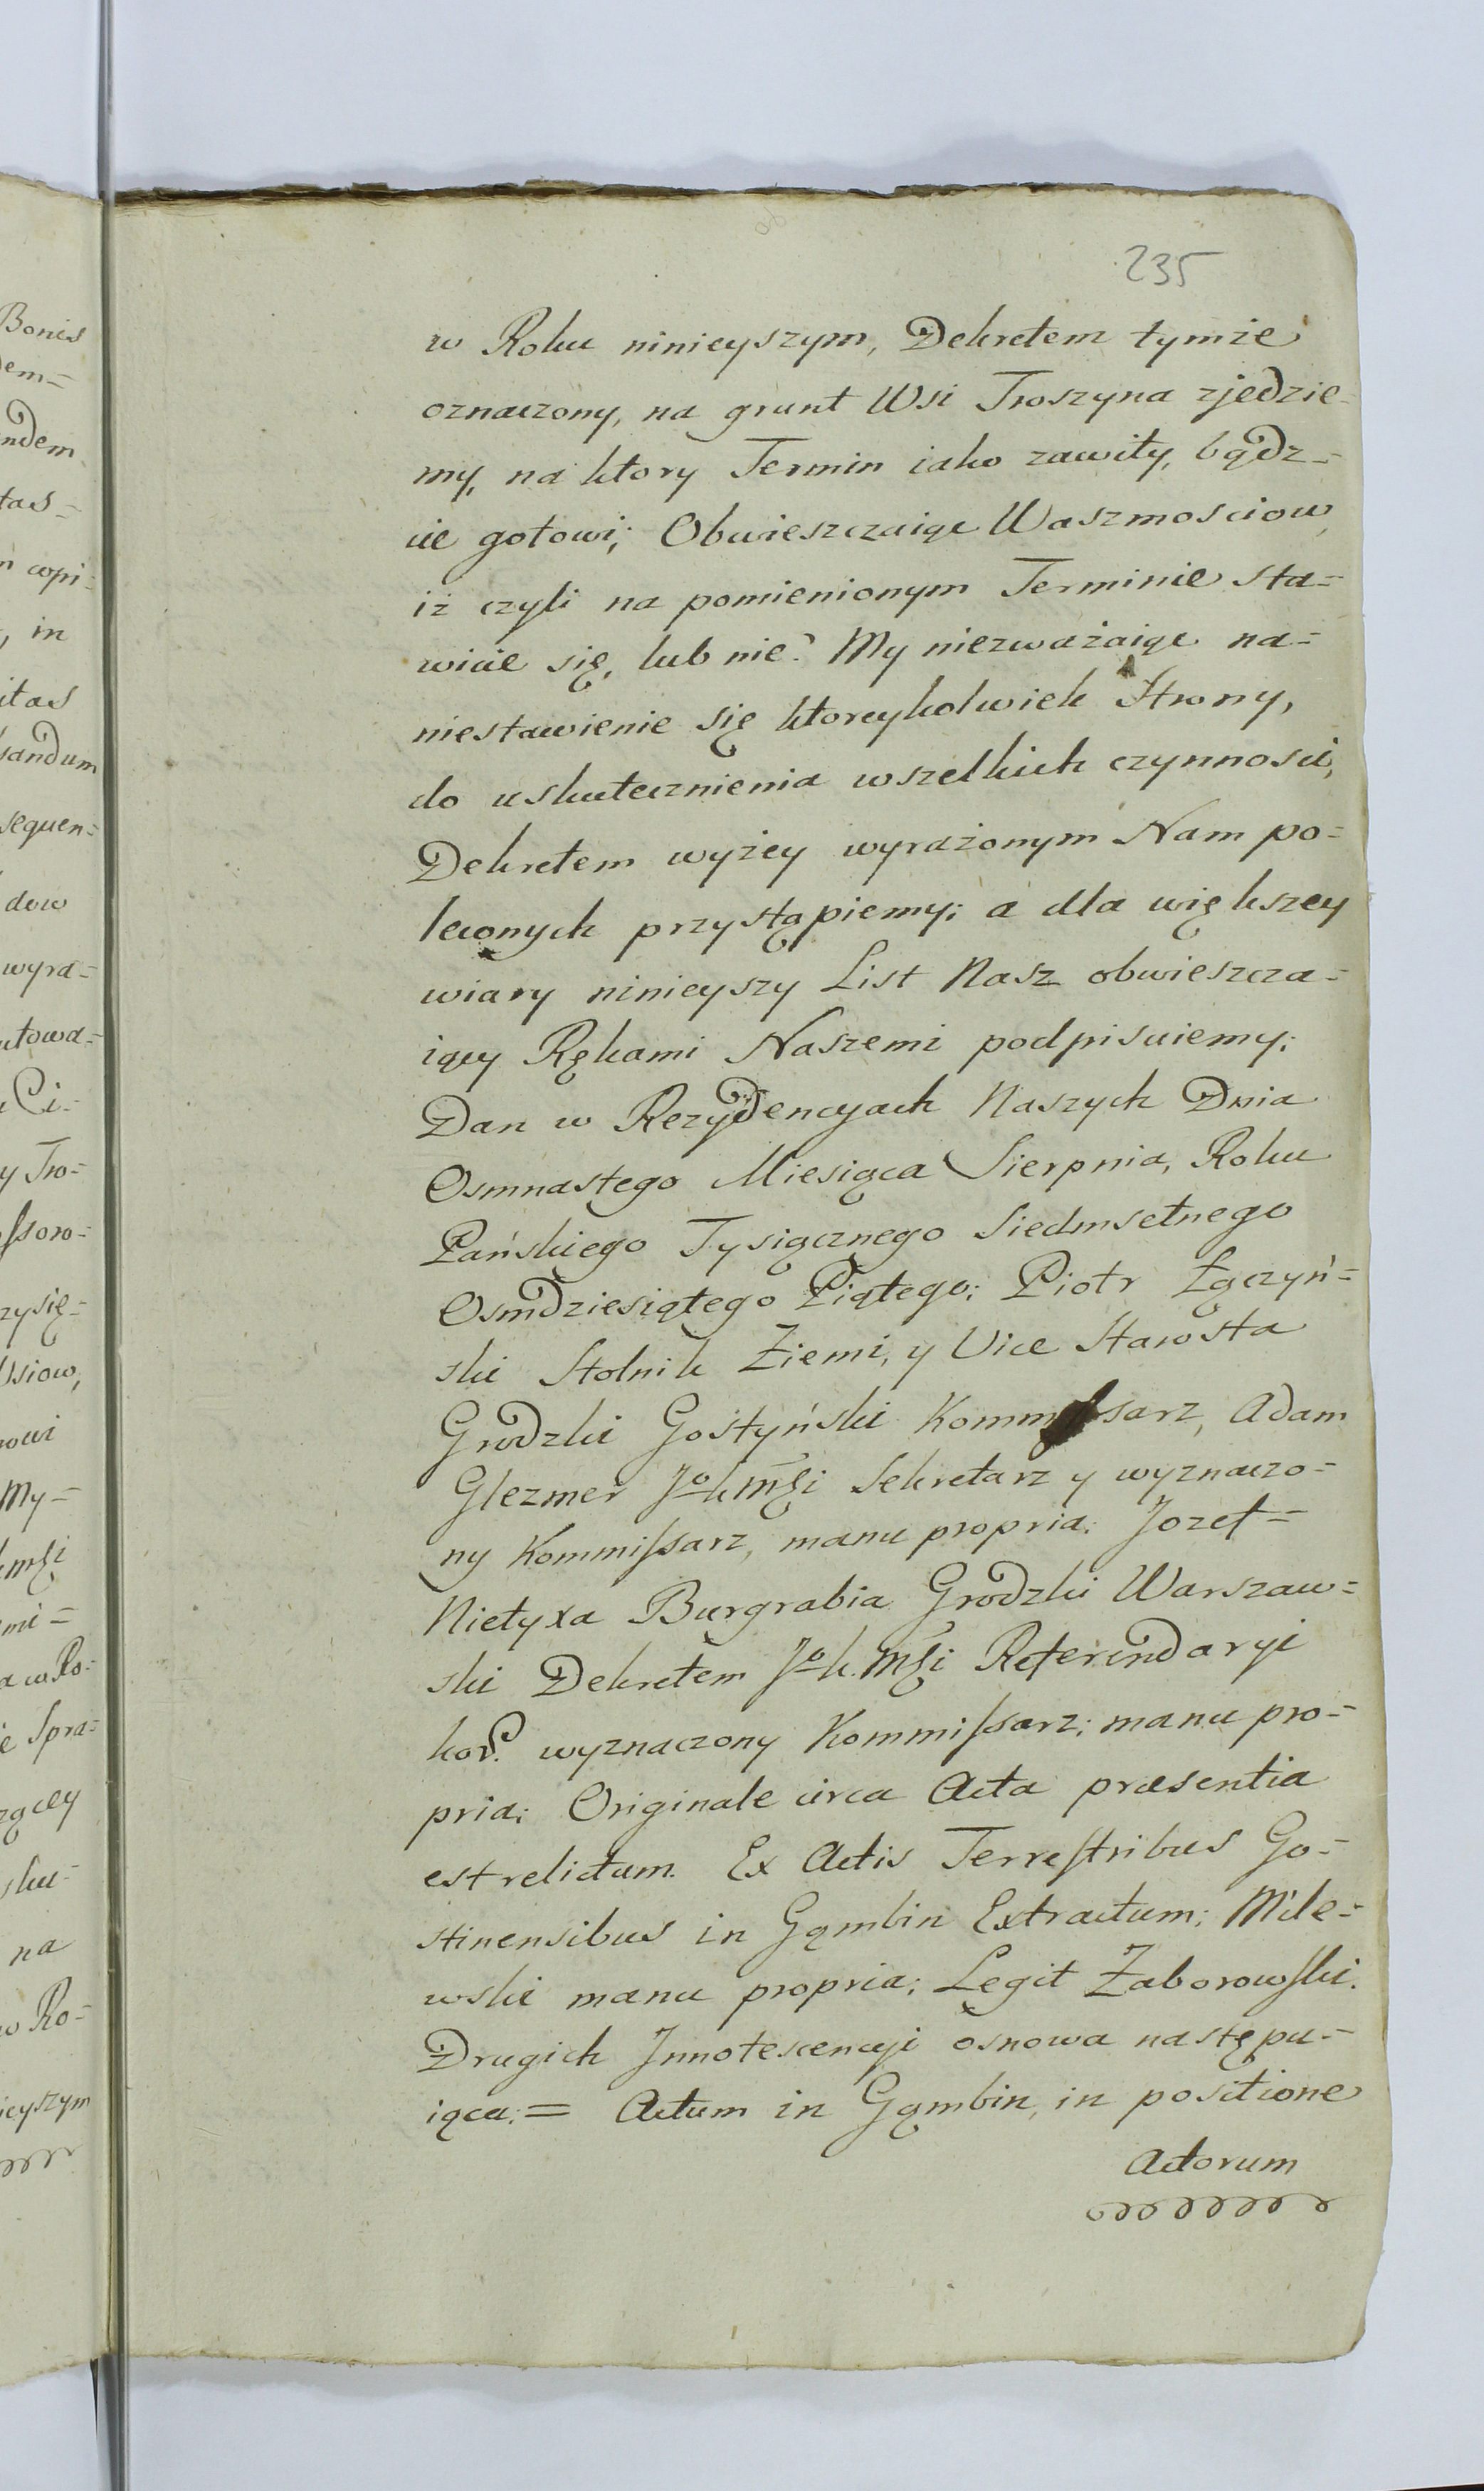 235
w Roku ninieyszym, Dekretem tymże
oznaczony, na grunt Wsi Troszyna zjedzie-
my, na ktory Termin iako zawity, bądz=
cie gotowi; Obwieszczaiąc Waszmosciow,
iż czyli na pomienionym Terminie sta=
wicie się, lub nie? My niezważaiąc na=
niestawienie się ktoreykolwiek Strony,
do uskutecznienia wszelkich czynnosci,
Dekretem wyżey wyrażonym Nam po=
leconych przystąpiemy; a dla większey
wiary ninieyszy List Nasz obwieszcza=
iący Rękami Naszemi podpisuiemy;
Dan w Rezydencyach Naszych Dnia
Osmnastego Miesiąca Sierpnia, Roku
Pańskiego Tysiącznego Siedmsetnego
Osmdziesiątego Piątego; Piotr Łączyń=
ski Stolnik Ziemi, y Vice Starosta
Grodzki Gostyński Kommissarz, Adam
Glezmer Jo K Mści Sekretarz y wyznaczo=
ny Kommissarz, manu propria; Jozef=
Nietyxa Burgrabia Grodzki Warszaw=
ski Dekretem Jo K. Mści Referendaryi
kor. wyznaczony Kommissarz; manu pro=
pria; Originale circa Acta præsentia
est relictum. Ex Actis Terrestribus Go=
stinensibus in Gąmbin Extractum; Mile=
wski manu propria; Legit Zaborowski.
Drugich Innotescencyi osnowa następu=
iąca; = Actum in Gąmbin, in positione
Actorum
Bonis
em=
ndem
tas=
wpi=
, in
itas
sandum
sequen=
dow
wyra=
utowa=
Ci=
y Tro=
ssoro=
zysię=
siow,
nowi
My=
mści
mi=
a w Ro=
ie Spra=
zącey
sku=
na
w Ro=
ieyszym